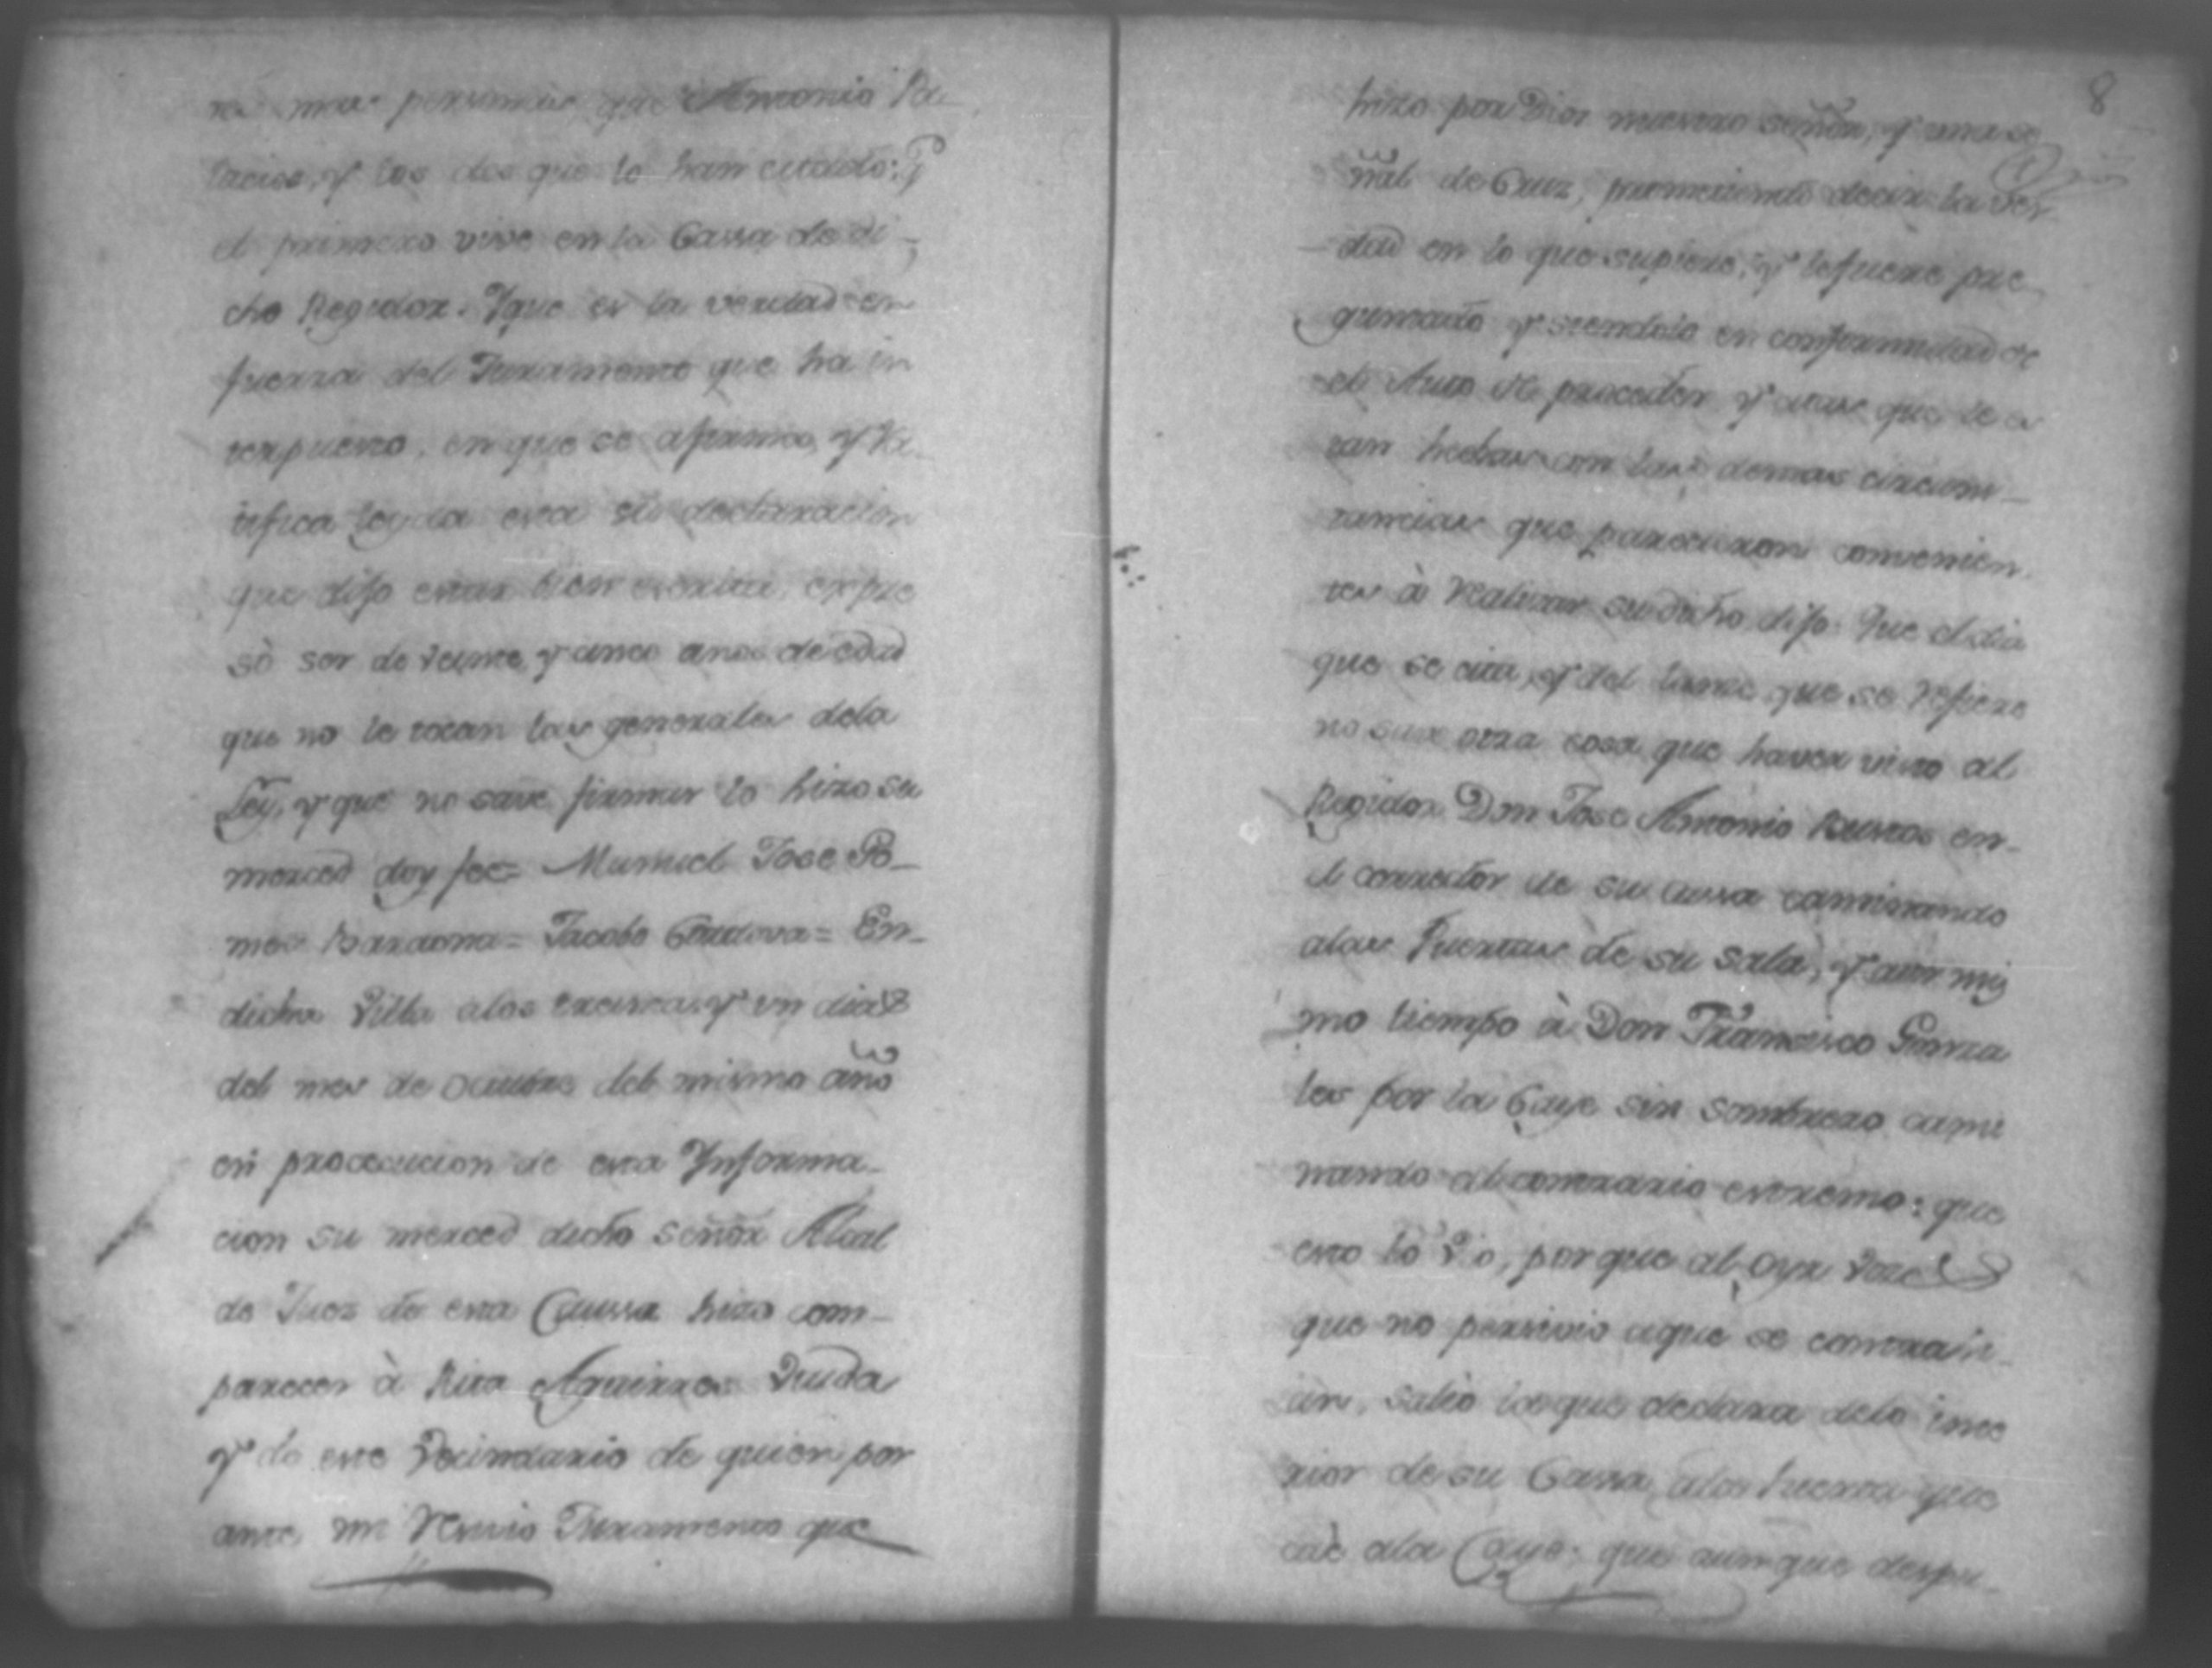 mas personas que Antonio Pa-
lacios, y los dos que lo han citado: q
el primero vive en la Cassa de di-
cho Regidor. Y que es la verdad en
fuerza del Juramento que ha in
terpuesto, en que se afirmó, y Ra-
tifica leyda esta su declaracion
que dijo estar bien escrita, expre
só ser de veinte, y cinco años de edad
que no le tocan las generales dela
Ley, y que no save firmar lo hizo su
merced doy fee = Manuel Jose Po-
mes Baraona = Jacobo Cordova = En-
dicha Villa alos treinta, y un dias
del mes de octubre del mismo año
en prosecucion de esta Ynforma-
cion su merced dicho señor Alcal
de Juez de esta Caussa hizo com-
parecer à Rita Aguirres Viuda
y de este Vecindario de quien por
ante mi Resivio Juramento que
8
hizo por Dios nuestro señor, y una se
ñal de Cruz, prometiendo decir la ver-
dad en lo que supiere, y le fuere pre
guntado y siendolo en conformidad de
el Auto de proceder y citas que le es
tan hechas con las demas circuns-
tancias que parecieron convenien-
tes à realizar su dicho dijo: Que el dia
que se cita, y del lance que se refiere
no save otra cosa que haver visto al
Regidor Don Jose Antonio Bustos en-
el corredor de su cassa caminando
alas Puertas de su sala, y aun mis
mo tiempo à Don Francisco Gonza
les por la Caye sin sombrero cami
nando al contrario extremo: que
esto lo vio, por que al oyr voces
que no persivio aque se contrahi-
an, salio la que declara delo inte
rior de su Cassa alas Puertas que
cae ala Caye: que aunque despu-